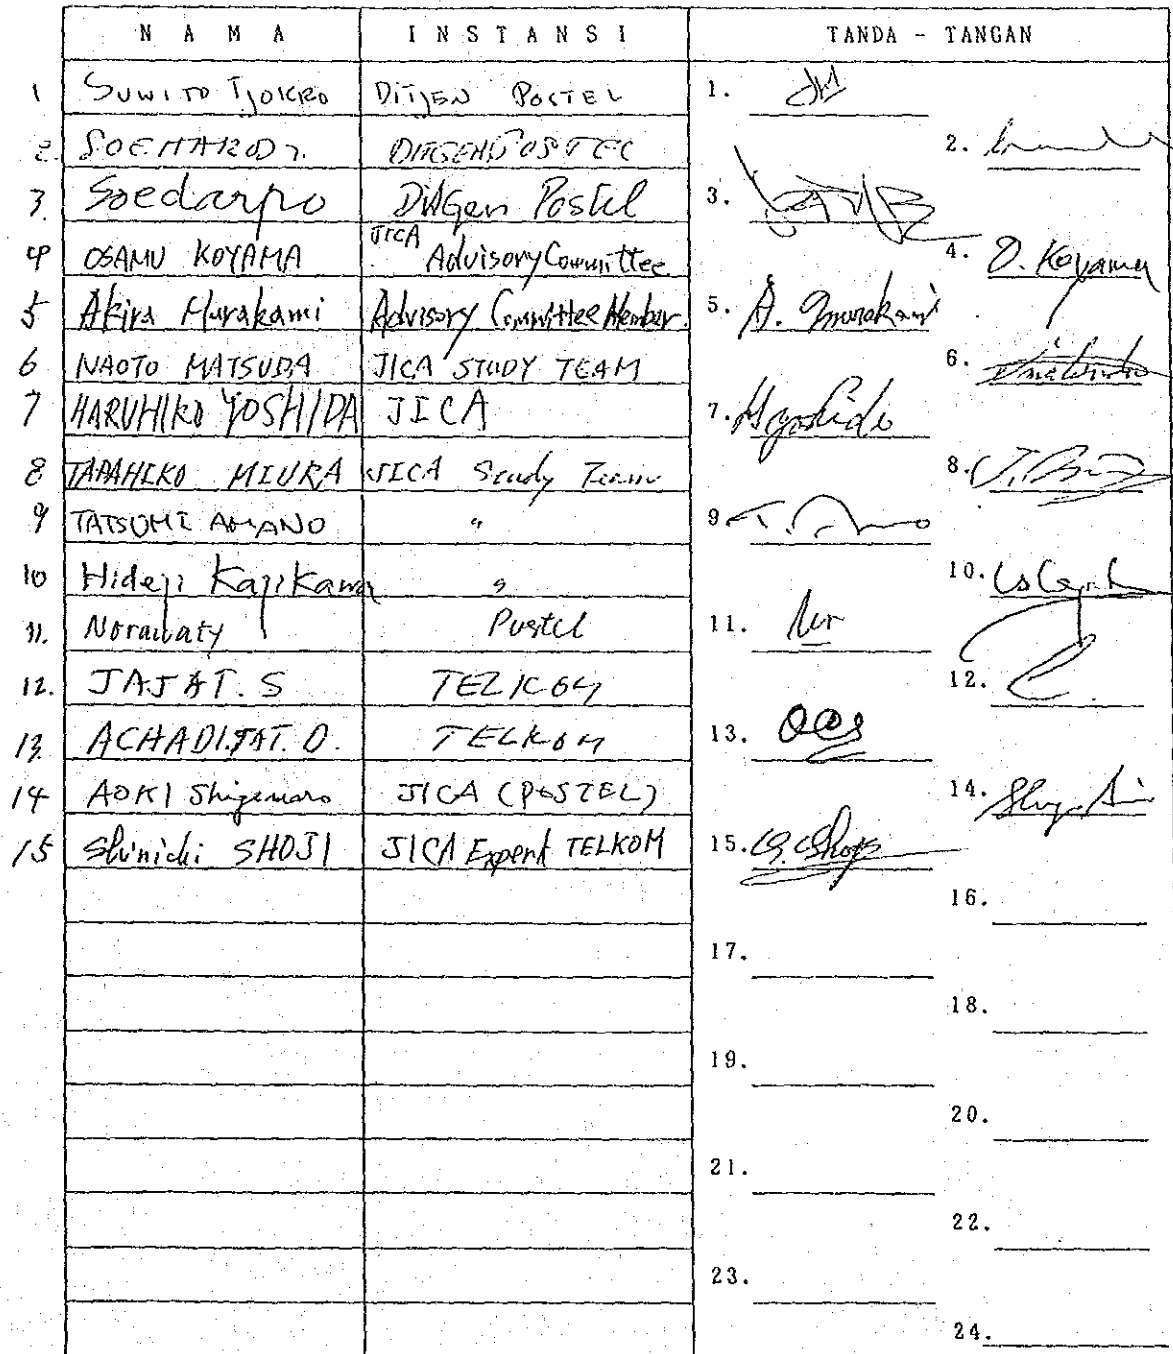 N A M A I N S T A N S I TANDA - TANGAN
1 Suwito Tjokro Ditjen Postel 1.
2. SOEMARODJ. DITGEN POSTEL 2.
3. Soedarpo Ditgen Postel 3.
4 OSAMU KOYAMA JICA Advisory Committee 4. O. Koyama
5 Akira Murakami Advisory Committee Member. 5. A. Murakami
6 NAOTO MATSUDA JICA STUDY TEAM 6.
7 HARUHIKO YOSHIDA JICA 7. H yoshida
8 TADAHIKO MIURA JICA Study Team 8.
9 TATSUMI AMANO " 9.
10 Hideji Kajikawa " 10.
11. Norawaty Postel 11. Nor
12. JAJAT. S TELKOM 12.
13. ACHADIJAT. D. TELKOM 13.
14 AOKI Shigemaro JICA (POSTEL) 14.
15 Shinichi SHOJI JICA Expert TELKOM 15. S. Shoji
16.
17.
18.
19.
20.
21.
22.
23.
24.